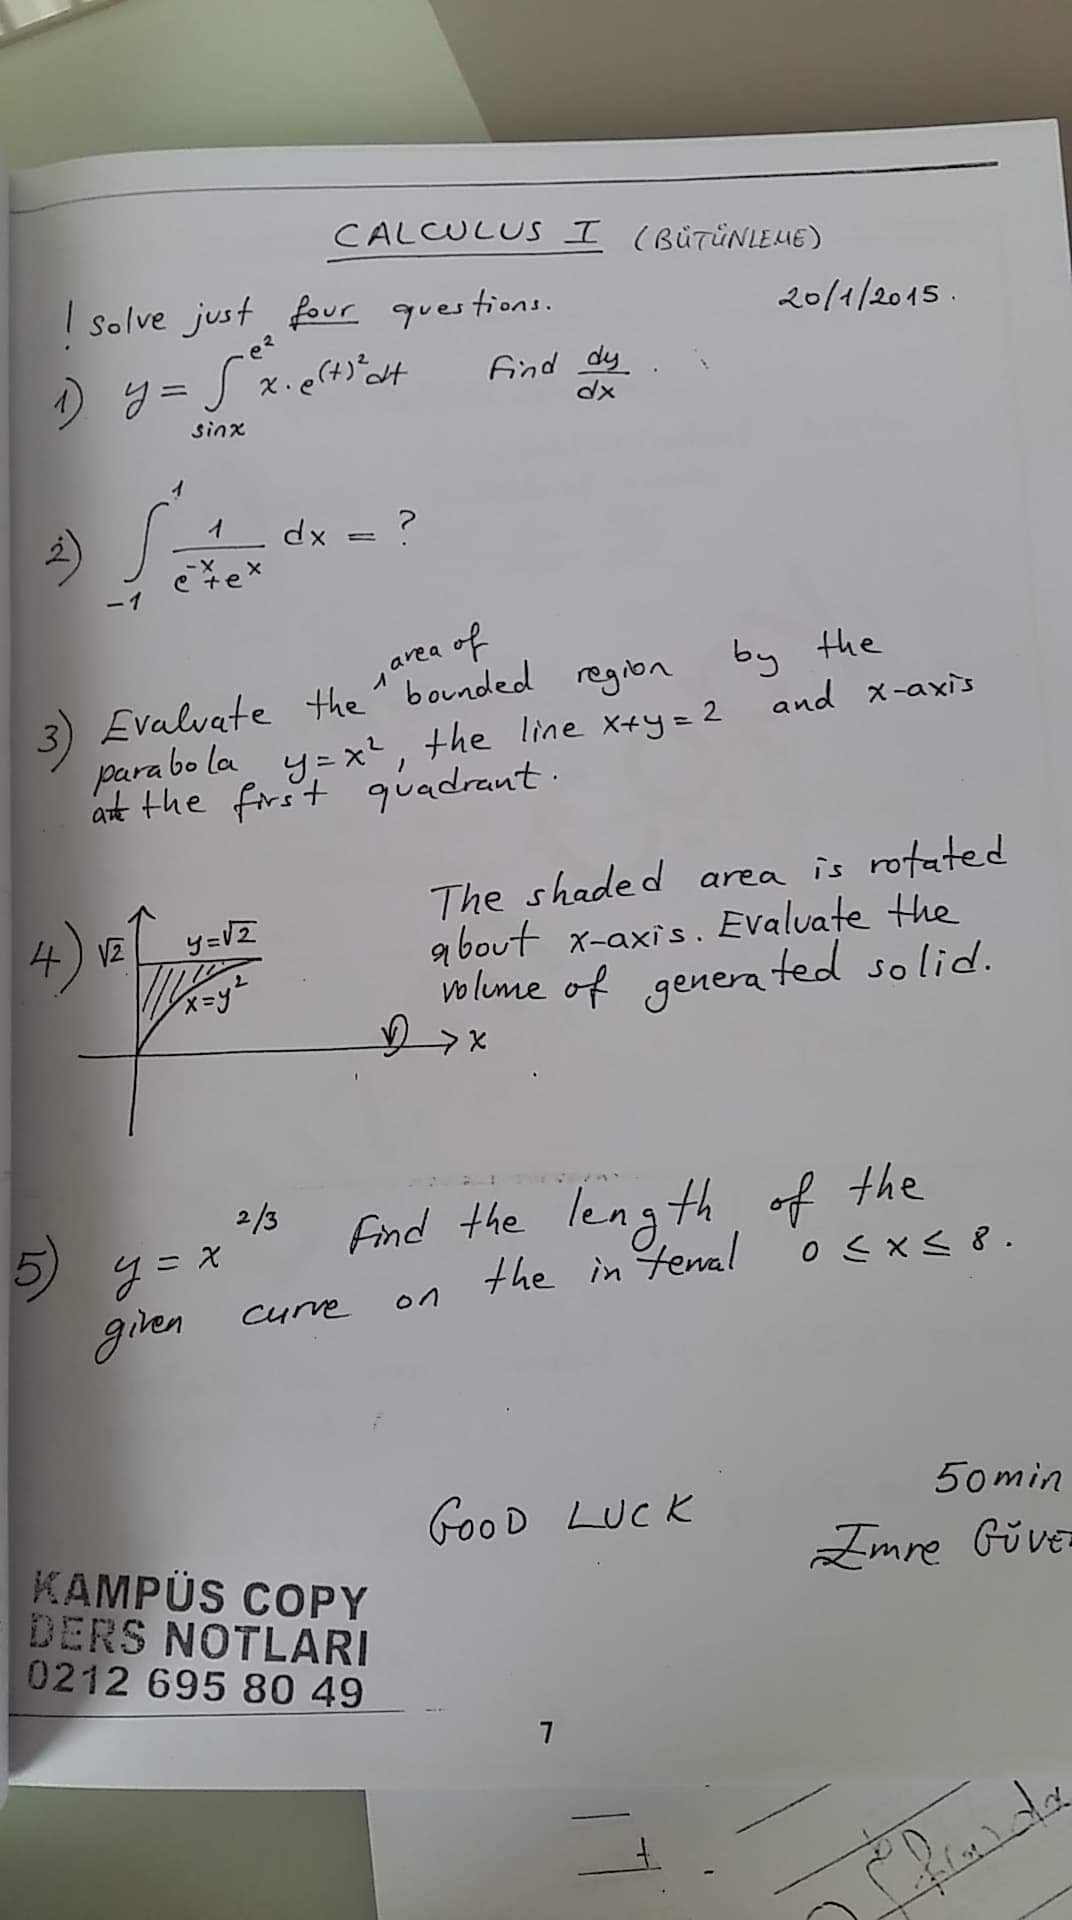 CALCULUS I (BÜTÜNLEME)
20/1/2015.
! Solve just four questions.
1) y = ∫_{sinx}^{e^2} x.e^{(t)^2} dt Find dy/dx.
2) ∫_{-1}^{1} 1/(e^{-x}+e^{x}) dx = ?
area of
3) Evaluate the ^ bounded region by the
parabola y=x^2, the line x+y=2 and x-axis
at the first quadrant.
4) √2 y=√2 x=y^2 x
The shaded area is rotated
about x-axis. Evaluate the
volume of generated solid.
5) y = x^{2/3} Find the length of the
given curve on the interval 0 ≤ x ≤ 8.
50min
GOOD LUCK
Emre
KAMPÜS COPY
DERS NOTLARI
0212 695 80 49
7